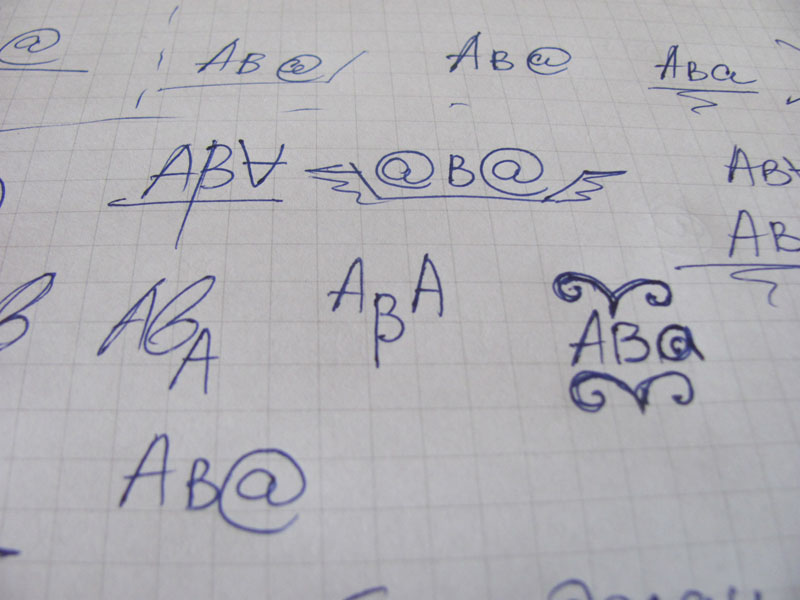 @ AB@ AB@ ABa
AB∀ @B@ AB∀
AB
B ABA ABA AB@
AB@